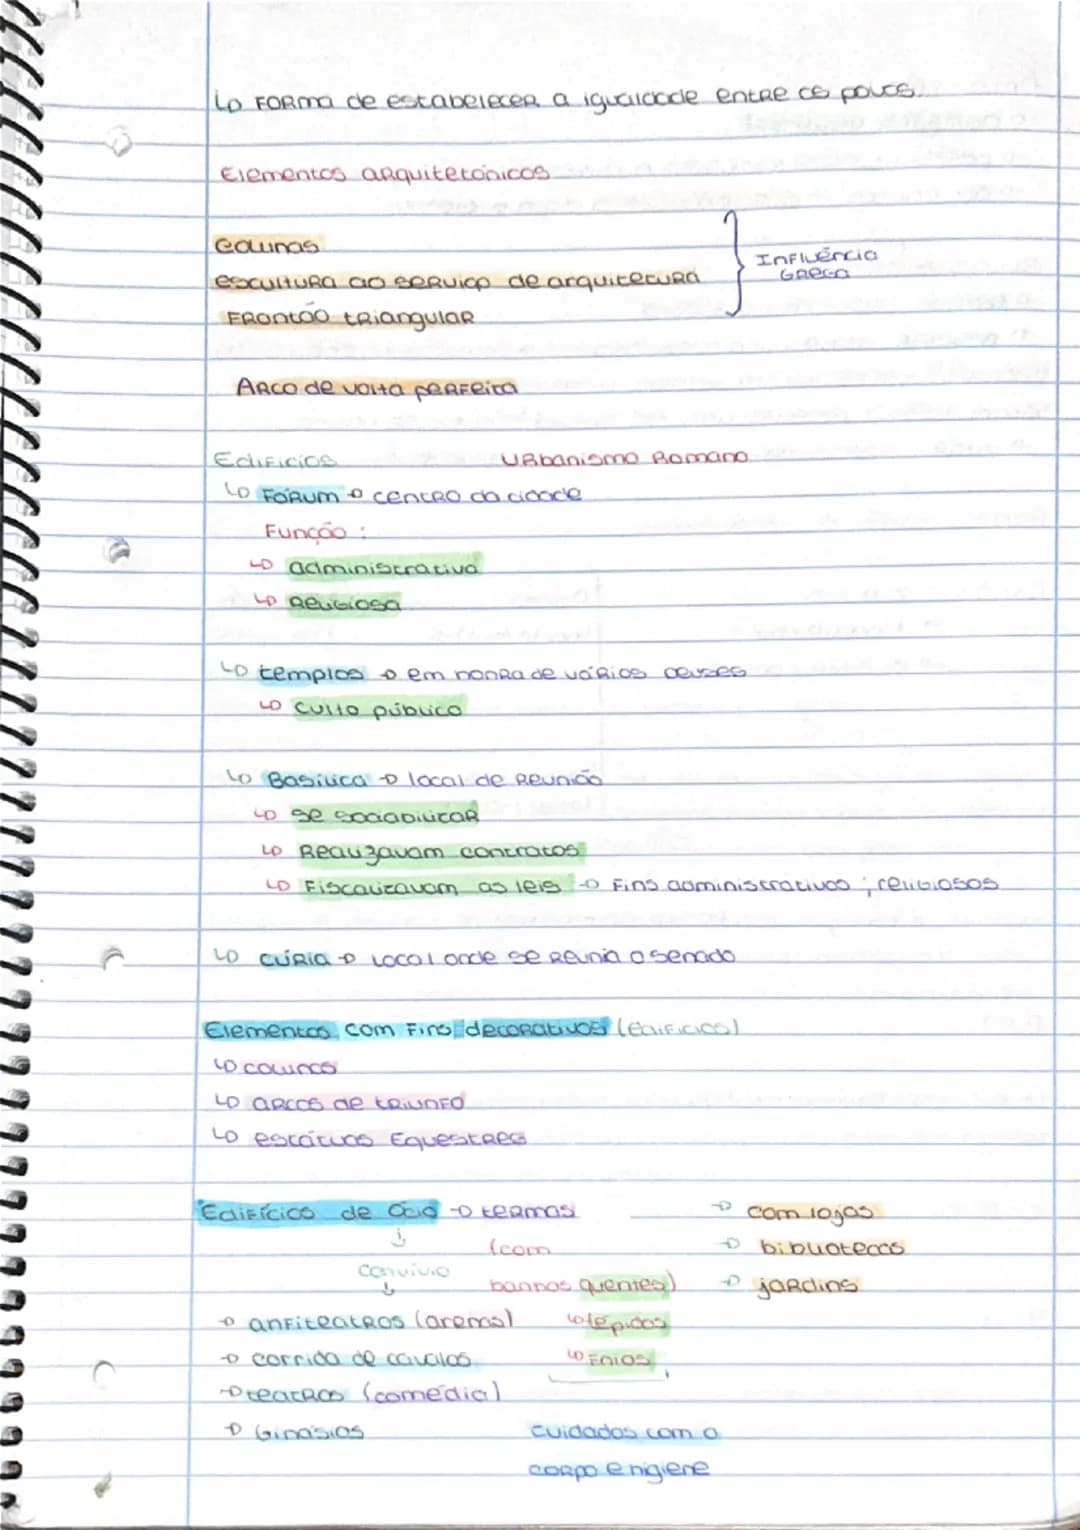 ↳ Forma de estabelecer a igualdade entre os povos
Elementos arquitetónicos
Colunas
escultura ao serviço de arquitetura
Frontão triangular
Influência
Grega
Arco de volta perfeita
Edifícios Urbanismo Romano
↳ Fórum → centro da cidade
Função :
↳ administrativa
↳ Religiosa
↳ templos → em honra de vários deuses
↳ Culto público
↳ Basilica → local de Reunião
↳ se sociabilizar
↳ Realizavam contratos
↳ Fiscalizavam as leis → Fins administrativos ; religiosos
↳ cúria → Local onde se Reunia o senado
Elementos com Fins decorativos (edifícios)
↳ colunas
↳ arcos de triunfo
↳ estátuas Equestres
Edifícios de Ócio → termas → com lojas
↓ (com → bibliotecas
convívio
↓ banhos quentes) → jardins
→ anfiteatros (arenas) ↳ tépidos
→ corrida de cavalos ↳ Frios
→ teatros (comédia)
→ Ginásios cuidados com o
corpo e higiene